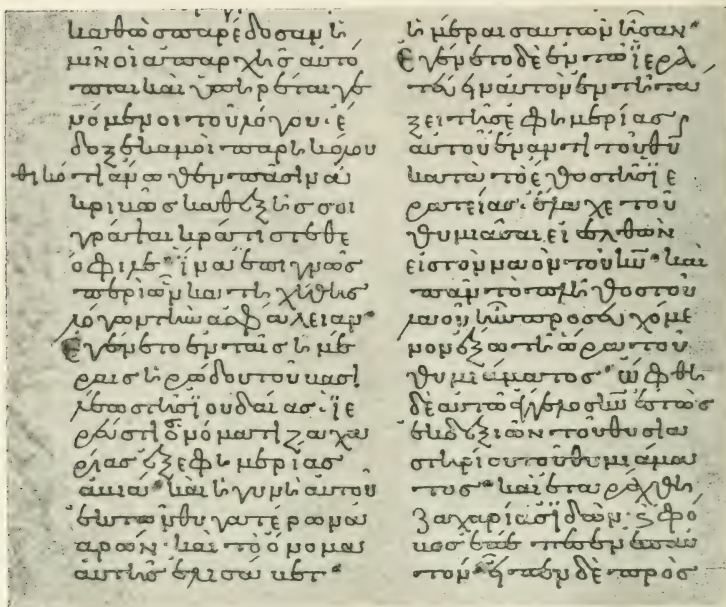 καθὼς παρέδοσαν ἡ
μῖν οἱ ἀπαρχῆς αὐτό
πται καὶ ὑπηρέται γε
νόμενοι τοῦ λόγου· ἔ
δοξε καμοὶ παρηκολου
θηκότι ἄνωθεν πᾶσιν ἀ
κριβῶς καθεξῆς σοι
γράψαι κράτιστε θε
όφιλε· ἵνα ἐπιγνῶς
περὶ ὧν κατηχήθης
λόγων τὴν ἀσφάλειαν·
Ἐγένετο ἐν ταῖς ἡμέ
ραις ἡρώδου τοῦ βασι
λέως τῆς ϊουδαίας· ἱε
ρεύς τις ὀνόματι ζαχα
ρίας ἐξ ἐφημερίας
ἀβιά· καὶ ἡ γυνὴ αὐτοῦ
ἐκ τῶν θυγατέρων ἀ
αρών· καὶ τὸ ὄνομα
αὐτῆς ἐλισάβετ·
ἡμέραις αὐτῶν ἦσαν·
Ἐγένετο δὲ ἐν τῶ ϊερα
τεύειν αὐτὸν ἐν τῆ τά
ξει τῆς ἐφημερίας
αὐτοῦ ἔναντι τοῦ θυ
κατὰ τὸ ἔθος τῆς ϊε
ρατείας· ἔλαχε τοῦ
θυμιᾶσαι εἰσελθὼν
εἰς τὸν ναὸν τοῦ κυ· καὶ
πᾶν τὸ πλῆθος τοῦ
λαοῦ ἦν προσευχόμε
νον ἔξω τῆ ὥρα τοῦ
θυμιάματος· ὤφθη
δὲ αὐτῶ ἄγγελος κυ ἑστὼς
ἐκ δεξιῶν τοῦ θυσια
στηρίου τοῦ θυμιάμα
τος· καὶ ἐταράχθη
ζαχαρίας ϊδών· ϗ φό
βος ἐπέπεσεν ἐπαυ
τόν· εἶπεν δὲ πρὸς